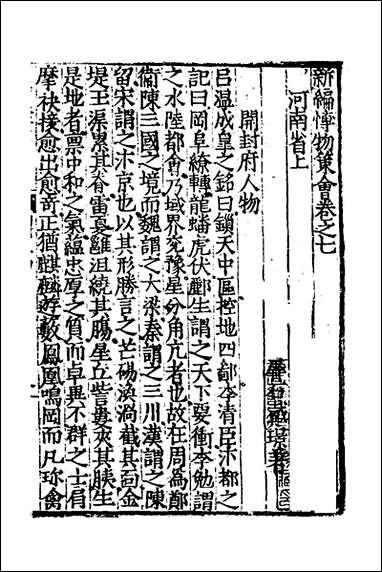 新編博物策會卷之七
河南省上
開封府人物
呂温成皋之銘曰鎖天中區控地四鄙李清臣汴都之
記曰岡阜繚轉龍蟠虎伏酈生謂之天下要衝李勉謂
之水陸都會乃域界兖豫星分角亢者也故在周為鄭
衛陳三國之境而魏謂之大梁秦謂之三川漢謂之陳
留宋謂之汴京也以其形勝言之芒碭渙渦截其面金
堤玉渠累其脊雷夏雝沮繞其腸星丘訾婁夾其胰生
是地者稟中和之氣蘊忠厚之質而卓異不群之士肩
摩袂接愈出愈奇正猶麒麟遊藪鳳凰鳴岡而凡珎禽